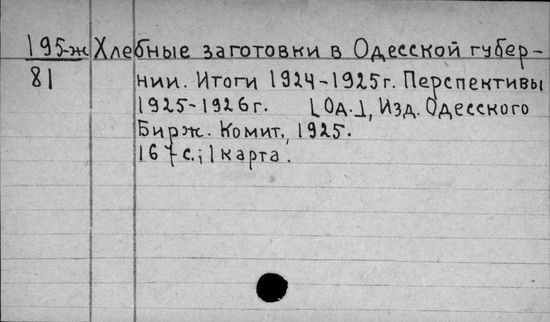 195-ж Хлебные заготовки в Одесской губер-
81 нии. Итоги 1924-1925г. Перспективы
1925-1926г. [Од.], Изд. Одесского
Бирж. Комит., 1925.
167 с.; 1 карта.